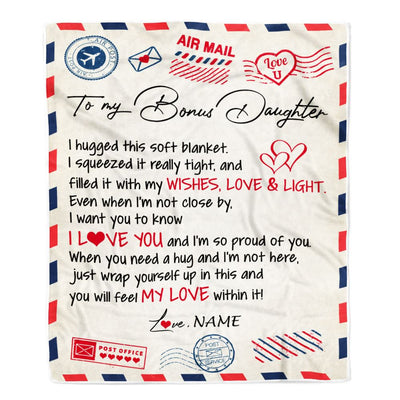 AIR MAIL
Love
U
To my Bonus Daughter
I hugged this soft blanket.
I squeezed it really tight, and
filled it with my WISHES, LOVE & LIGHT.
Even when I'm not close by,
I want you to know
I L❤VE YOU and I'm so proud of you.
When you need a hug and I'm not here,
just wrap yourself up in this and
you will feel MY LOVE within it!
Love, NAME
POST OFFICE
POST
SERVICE